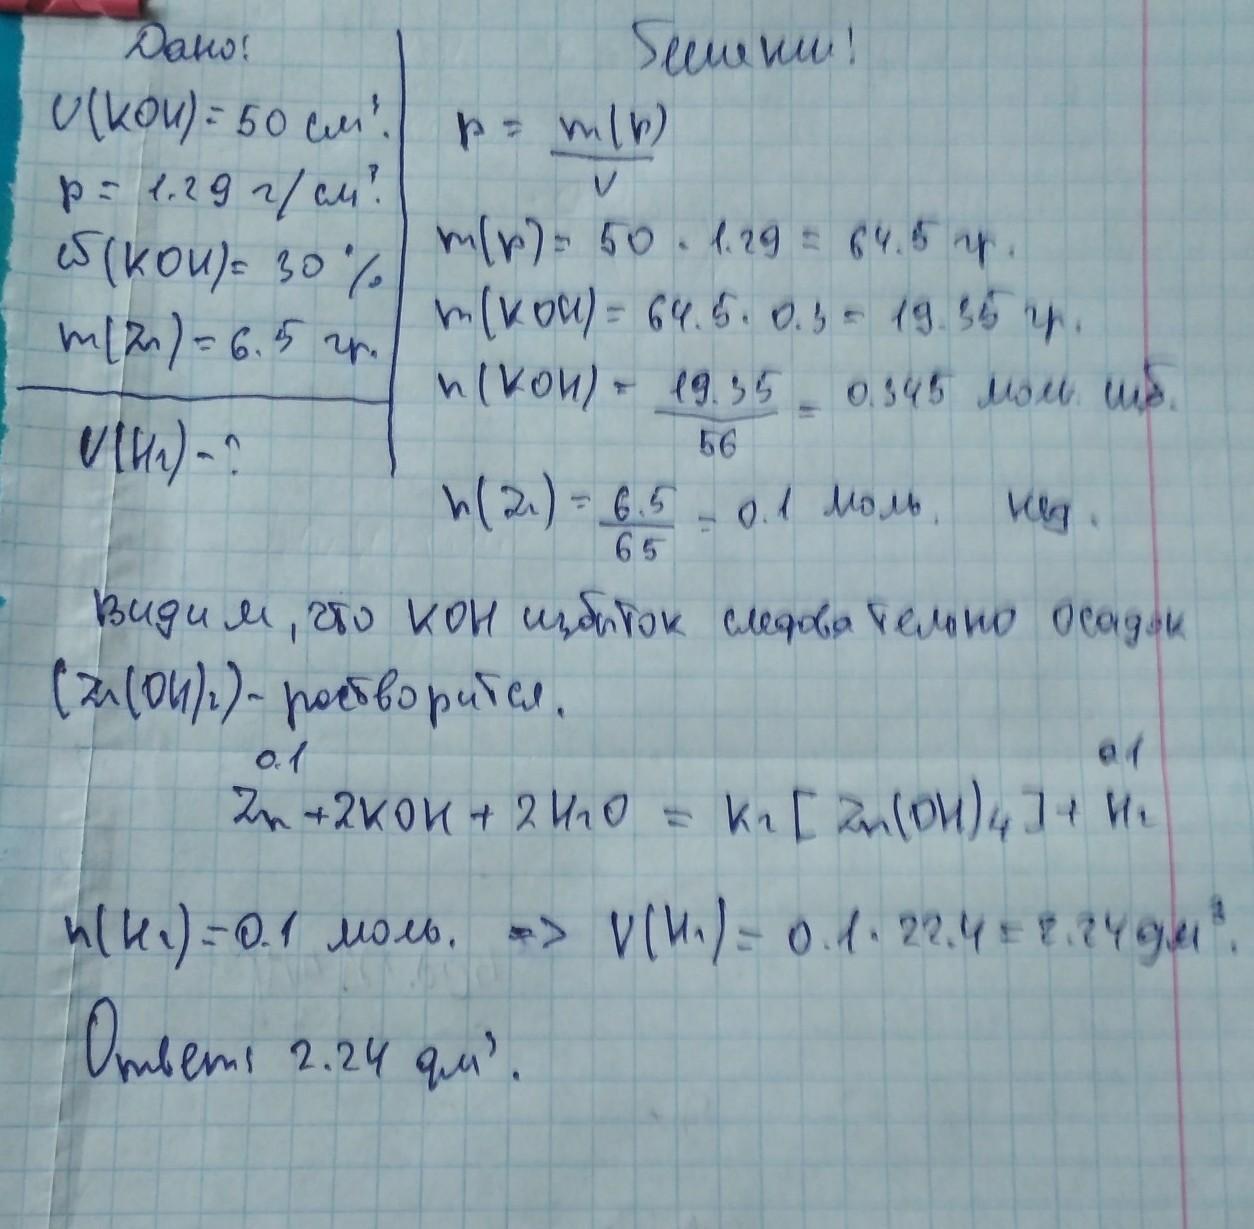 Дано:
V(KOH)= 50 см³.
p= 1.29 г/см³.
ω(KOH)= 30%
m(Zn)= 6.5 гр.
V(H₂)-?
p = m(p)/V
m(p)= 50 · 1.29 = 64.5 гр.
m(KOH)= 64.5 · 0.3 = 19.35 гр.
n(KOH) = 19.35/56 = 0.345 моль. изб.
n(Zn) = 6.5/65 = 0.1 моль. нед.
Видим, что KOH избиток следовательно осадок
(Zn(OH)₂)- растворится.
0.1 0.1
Zn +2KOH + 2H₂O = K₂[Zn(OH)₄] + H₂
n(H₂)=0.1 моль. => V(H₂)= 0.1 · 22.4 = 2.24 дм³.
Ответ: 2.24 дм³.